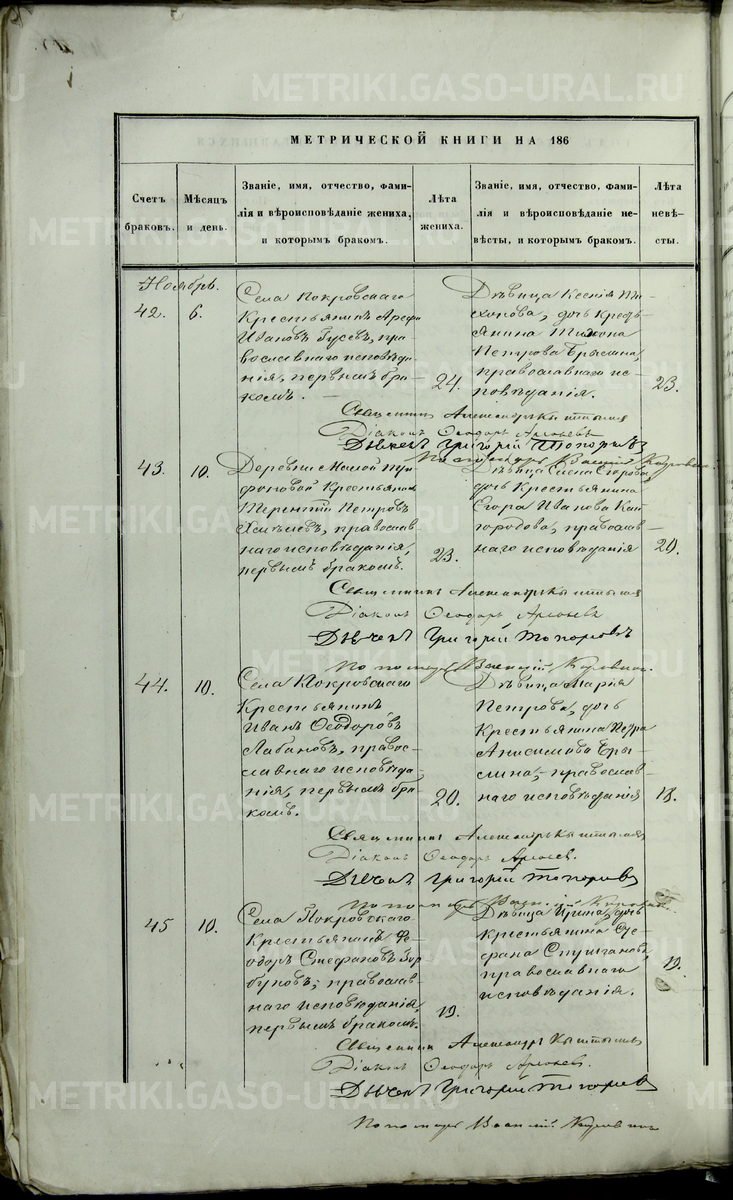 МЕТРИЧЕСКОЙ КНИГИ НА 186
Счетъ браковъ.
Мѣсяцъ и день.
Званіе, имя, отчество, фами-
лія и вѣроисповѣданіе жениха,
и которымъ бракомъ.
Лѣта жениха.
Званіе, имя, отчество, фами-
лія и вѣроисповѣданіе не-
вѣсты, и которымъ бракомъ.
Лѣта невѣ-
сты.
Ноябрь.
42.
6.
Села Покровскаго
Крестьянинъ Арефа
Ивановъ Гусевъ, пра-
вославнаго исповѣда-
нія, первымъ бра-
комъ.
24.
Дѣвица Ксенія Ти-
хонова, дочь Кресть-
янина Тихона
Петрова
православнаго ис-
повѣданія.
23.
Священникъ Александръ
Діаконъ Ѳеодоръ
Дьячекъ Григорій Топорковъ
Пономарь Василій
43.
10.
Деревни Малой
Крестьянинъ
Терентій Петровъ
православ-
наго исповѣданія,
первымъ бракомъ.
23.
Дѣвица Елена Егорова
дочь Крестьянина
Егора Иванова Кай-
городова, православ-
наго исповѣданія
20.
Священникъ Александръ
Діаконъ Ѳеодоръ
Дьячекъ Григорій Топорковъ
Пономарь Василій
44.
10.
Села Покровскаго
Крестьянинъ
Иванъ Ѳеодоровъ
Лабановъ, правос-
лавнаго исповѣда-
нія, первымъ бра-
комъ.
20.
Дѣвица Марія
Петрова, дочь
Крестьянина Петра
Анисимова
православ-
наго исповѣданія
18.
Священникъ Александръ
Діаконъ Ѳеодоръ
Дьячекъ Григорій Топорковъ
Пономарь Василій
45
10.
Села Покровскаго
Крестьянинъ Ѳе-
одоръ Стефановъ Гор-
буновъ, православ-
наго исповѣданія,
первымъ бракомъ.
19.
Дѣвица Ирина, дочь
Крестьянина
православнаго
исповѣданія.
19.
Священникъ Александръ
Діаконъ Ѳеодоръ
Дьячекъ Григорій Топорковъ
Пономарь Василій
METRIKI.GASO-URAL.RU